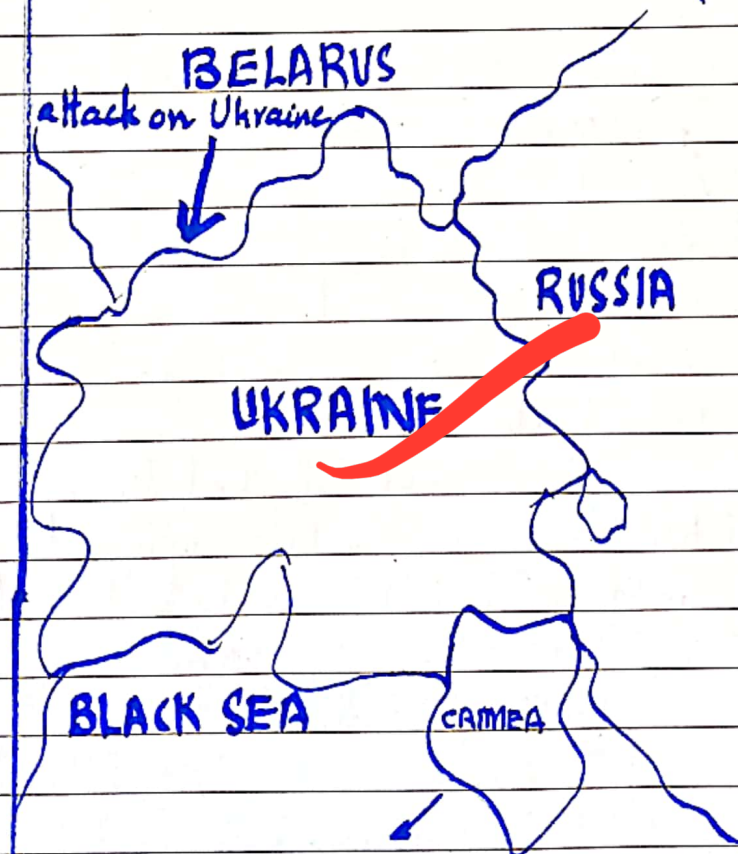 BELARUS
attack on Ukraine
RUSSIA
UKRAINE
BLACK SEA